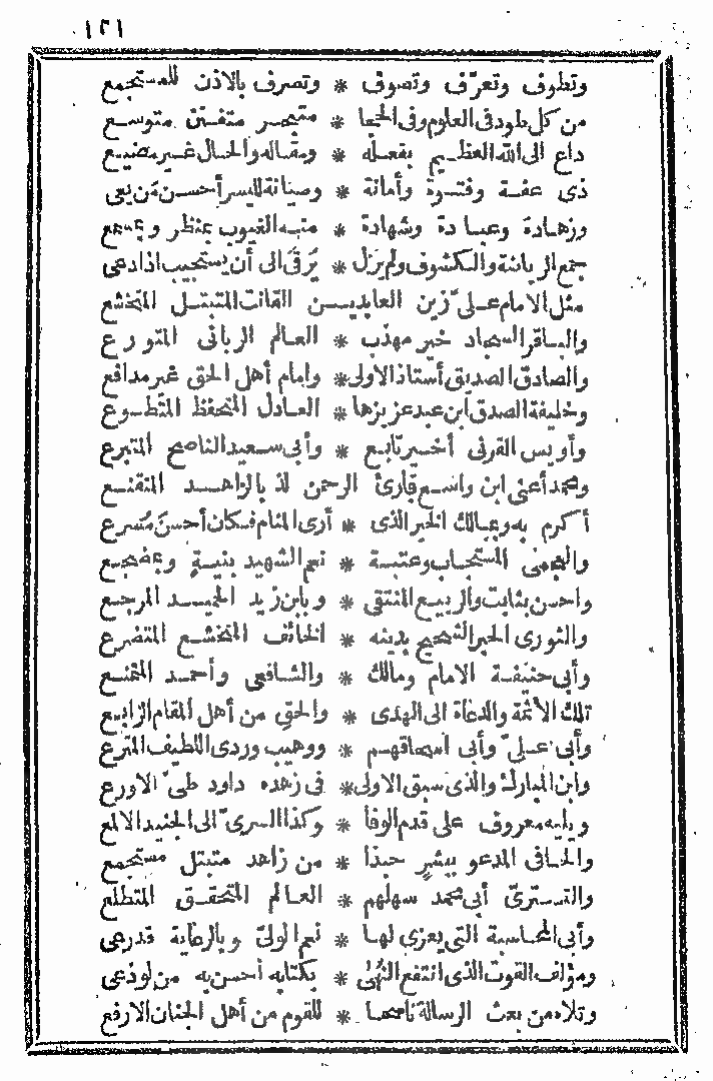 ١٢١
وتطوف وتعرّف وتصوّف * وتصرف بالاذن للمستجمع
من كل طود فى العلوم وفى الحجا * متبحر متفنن متوسع
داع الى الله العظيم بفعله * ومقاله والحال غير مضيع
ذى عفة وفتوة وأمانة * وصيانة للسر أحسن من يعى
وزهادة وعبادة وشهادة * منه الغيوب بمنظر وبمسمع
جمع الرياضة والكشوف ولم يزل * يُرقى الى أن يستجيب اذا دعى
مثل الامام علىّ زين العابدين القانت المتبتل المتخشع
والباقر السجاد خير مهذب * العالم الربانى المتورع
والصادق الصديق أستاذ الاولى * وامام أهل الحق غير مدافع
وخليفة الصدق ابن عبد عزيزها * العادل المتحفظ المتطوع
وأويس القرنى أخير تابع * وأبى سعيد الناصح المتبرع
ومحمد أعنى ابن واسع قارئ الرحمن لذ بالزاهد المتقنع
أكرم به وبمالك الخبر الذى * أرى المنام فكان أحسن مُسرع
والعجمى المستجاب وعتبة * نعم الشهيد بنية وبمضجع
واحسن بثابت والربيع المنتقى * وبابن زيد الحميد المرجع
والثورى الحبر الشحيح بدينه * الخائف المتخشع المتضرع
وأبى حنيفة الامام ومالك * والشافعى وأحمد المتمنع
تلك الأئمة والدعاة الى الهدى * والحق من أهل المقام الرابع
وأبى علىّ وأبى اسحاقهم * ووهيب وردى اللطيف المترع
وابن المبارك والذى سبق الاولى * فى زهده داود طىّ الاورع
ويليه معروف على قدم الوفا * وكذا السرىّ الى الجنيد الالمع
والحافى المدعو ببشرٍ حبذا * من زاهد متبتل مستجمع
والتسترىّ أبى محمد سهلهم * العالم المتحقق المتطلع
وأبى المحاسبة التى يعزى لها * نعم الولىّ وبالرعاية قد رعى
ومؤلف القوت الذى انتفع النُهى * بكتابه أحسن به من لوذعى
وتلاه من بعث الرسالة ناصحا * للقوم من أهل الجنان الارفع